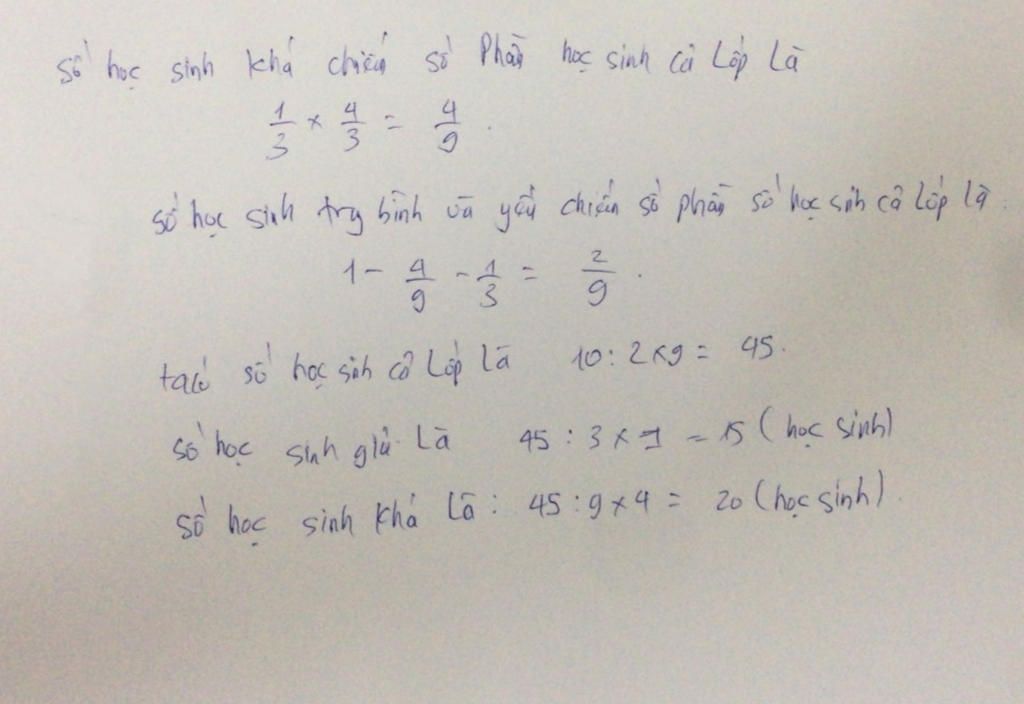 số học sinh khá chiếm số phần học sinh cả lớp là
1/3 × 4/3 = 4/9 .
số học sinh trg bình và yếu chiếm số phần số học sinh cả lớp là .
1 - 4/9 - 1/3 = 2/9 .
ta có số học sinh cả lớp là 10 : 2 × 9 = 45 .
số học sinh giỏi là 45 : 3 × 1 = 15 ( học sinh )
số học sinh khá là : 45 : 9 × 4 = 20 ( học sinh ) .